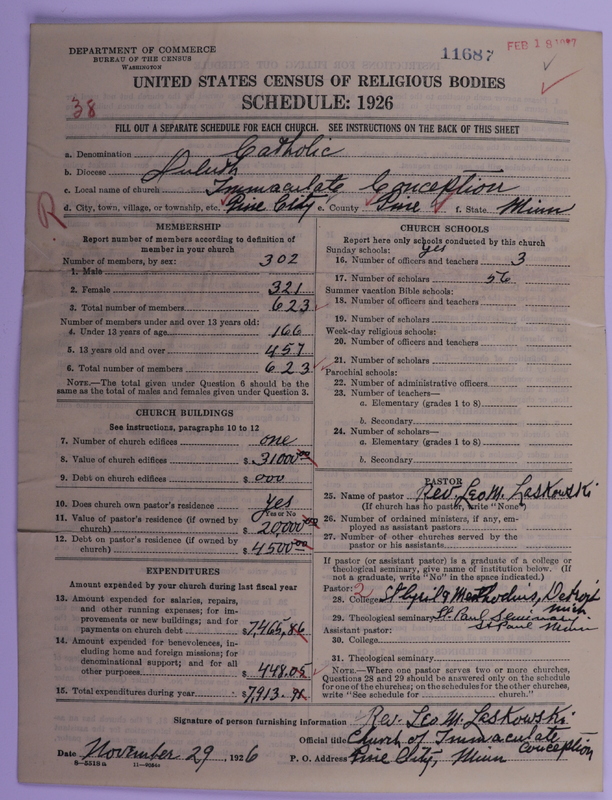 DEPARTMENT OF COMMERCE
BUREAU OF THE CENSUS
WASHINGTON
11687
FEB 18 1927
UNITED STATES CENSUS OF RELIGIOUS BODIES
SCHEDULE: 1926
38
FILL OUT A SEPARATE SCHEDULE FOR EACH CHURCH. SEE INSTRUCTIONS ON THE BACK OF THIS SHEET
a. Denomination Catholic
b. Diocese Duluth
c. Local name of church Immaculate Conception
d. City, town, village, or township, etc. Pine City e. County Pine f. State Minn
R
MEMBERSHIP
Report number of members according to definition of
member in your church
Number of members, by sex:
1. Male 302
2. Female 321
3. Total number of members 623
Number of members under and over 13 years old:
4. Under 13 years of age 166
5. 13 years old and over 457
6. Total number of members 623
NOTE.—The total given under Question 6 should be the
same as the total of males and females given under Question 3.
CHURCH BUILDINGS
See instructions, paragraphs 10 to 12
7. Number of church edifices one
8. Value of church edifices $ 31000 00
9. Debt on church edifices $ 000
10. Does church own pastor's residence Yes
Yes or No
11. Value of pastor's residence (if owned by
church) $ 20,000 00
12. Debt on pastor's residence (if owned by
church) $ 4500 00
EXPENDITURES
Amount expended by your church during last fiscal year
13. Amount expended for salaries, repairs,
and other running expenses; for im-
provements or new buildings; and for
payments on church debt $ 7,465.86
14. Amount expended for benevolences, in-
cluding home and foreign missions; for
denominational support; and for all
other purposes $ 448.05
15. Total expenditures during year $ 7,913.91
CHURCH SCHOOLS
Report here only schools conducted by this church
Sunday schools: yes
16. Number of officers and teachers 3
17. Number of scholars 56
Summer vacation Bible schools:
18. Number of officers and teachers
19. Number of scholars
Week-day religious schools:
20. Number of officers and teachers
21. Number of scholars
Parochial schools:
22. Number of administrative officers
23. Number of teachers—
a. Elementary (grades 1 to 8)
b. Secondary
24. Number of scholars—
a. Elementary (grades 1 to 8)
b. Secondary
PASTOR
25. Name of pastor Rev. Leo M. Laskowski
(If church has no pastor, write "None")
26. Number of ordained ministers, if any, em-
ployed as assistant pastors
27. Number of other churches served by the
pastor or his assistants
If pastor (or assistant pastor) is a graduate of a college or
theological seminary, give name of institution below. (If
not a graduate, write "No" in the space indicated.)
Pastor: 2
28. College St Cyril & Methodius, Detroit
Mich
29. Theological seminary St. Paul Seminary
St Paul Minn
Assistant pastor:
30. College
31. Theological seminary
NOTE.—Where one pastor serves two or more churches,
Questions 28 and 29 should be answered only on the schedule
for one of the churches; on the schedules for the other churches,
write "See schedule for church."
Signature of person furnishing information Rev. Leo M. Laskowski
Official title Church of Immaculate
Conception
Date November 29, 1926 P. O. Address Pine City, Minn
8—5518a 11—9054a